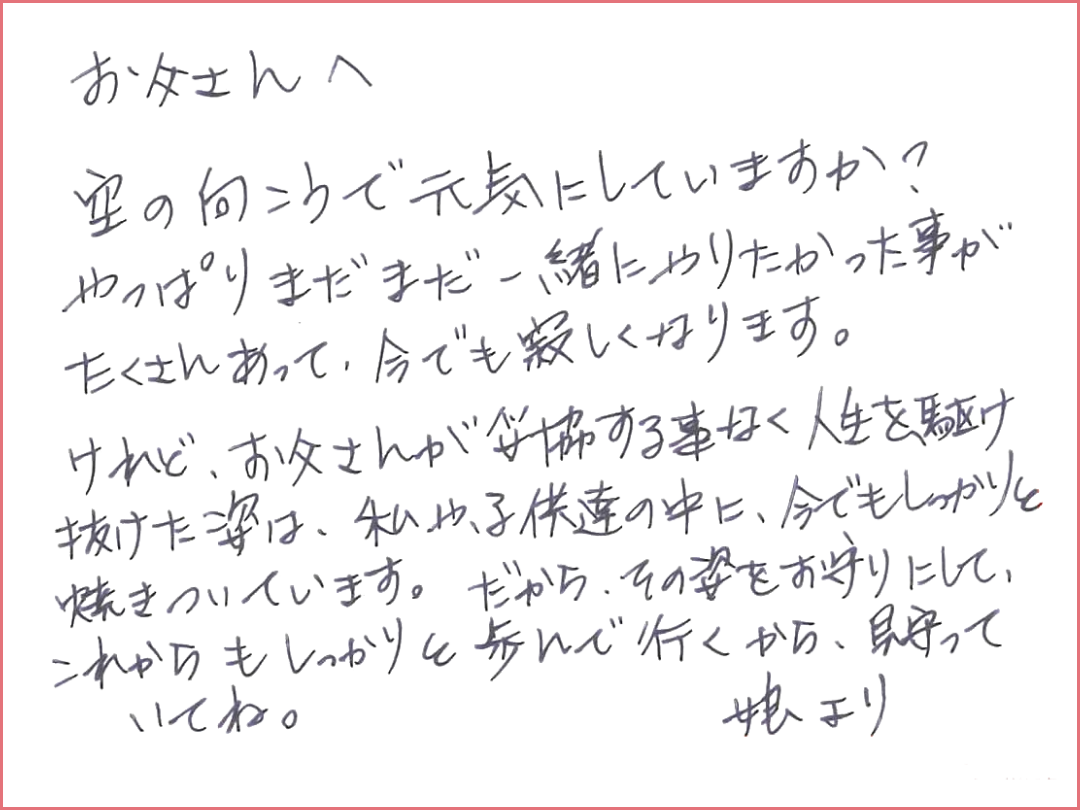 お父さんへ
空の向こうで元気にしていますか?
やっぱりまだまだ一緒にやりたかった事が
たくさんあって、今でも寂しくなります。
けれど、お父さんが妥協する事なく人生を駆け
抜けた姿は、私や、子供達の中に、今でもしっかりと
焼きついています。だから、その姿をお守りにして、
これからもしっかりと歩んで行くから、見守って
いてね。 娘より